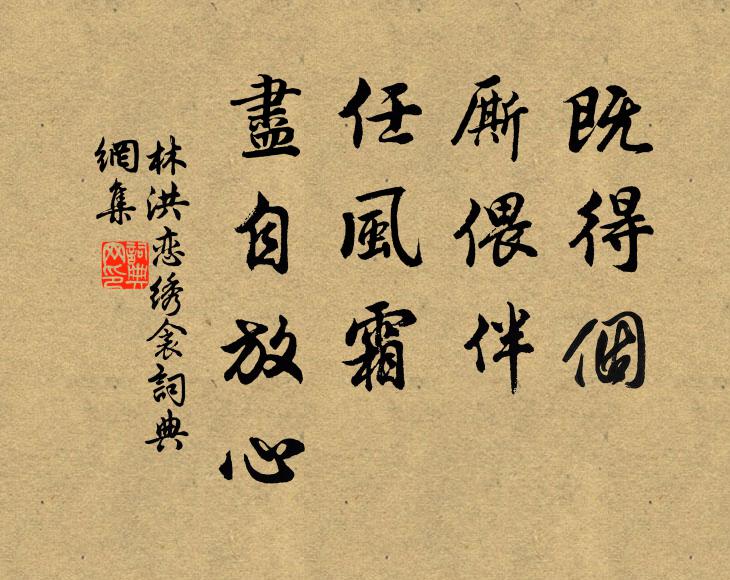 既得個
厮偎伴
任風霜
盡自放心
林洪恋绣衾詞典
網集
詞典
网印